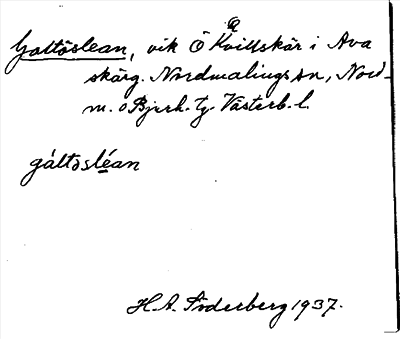 Galtöslean, vik Ö Kvillskär i Ava
skärg. Nordmalings sn, Nord-
m. o Bjurh. tg. Västerb. l.
gáltəsléan
H. A. Söderberg 1937.